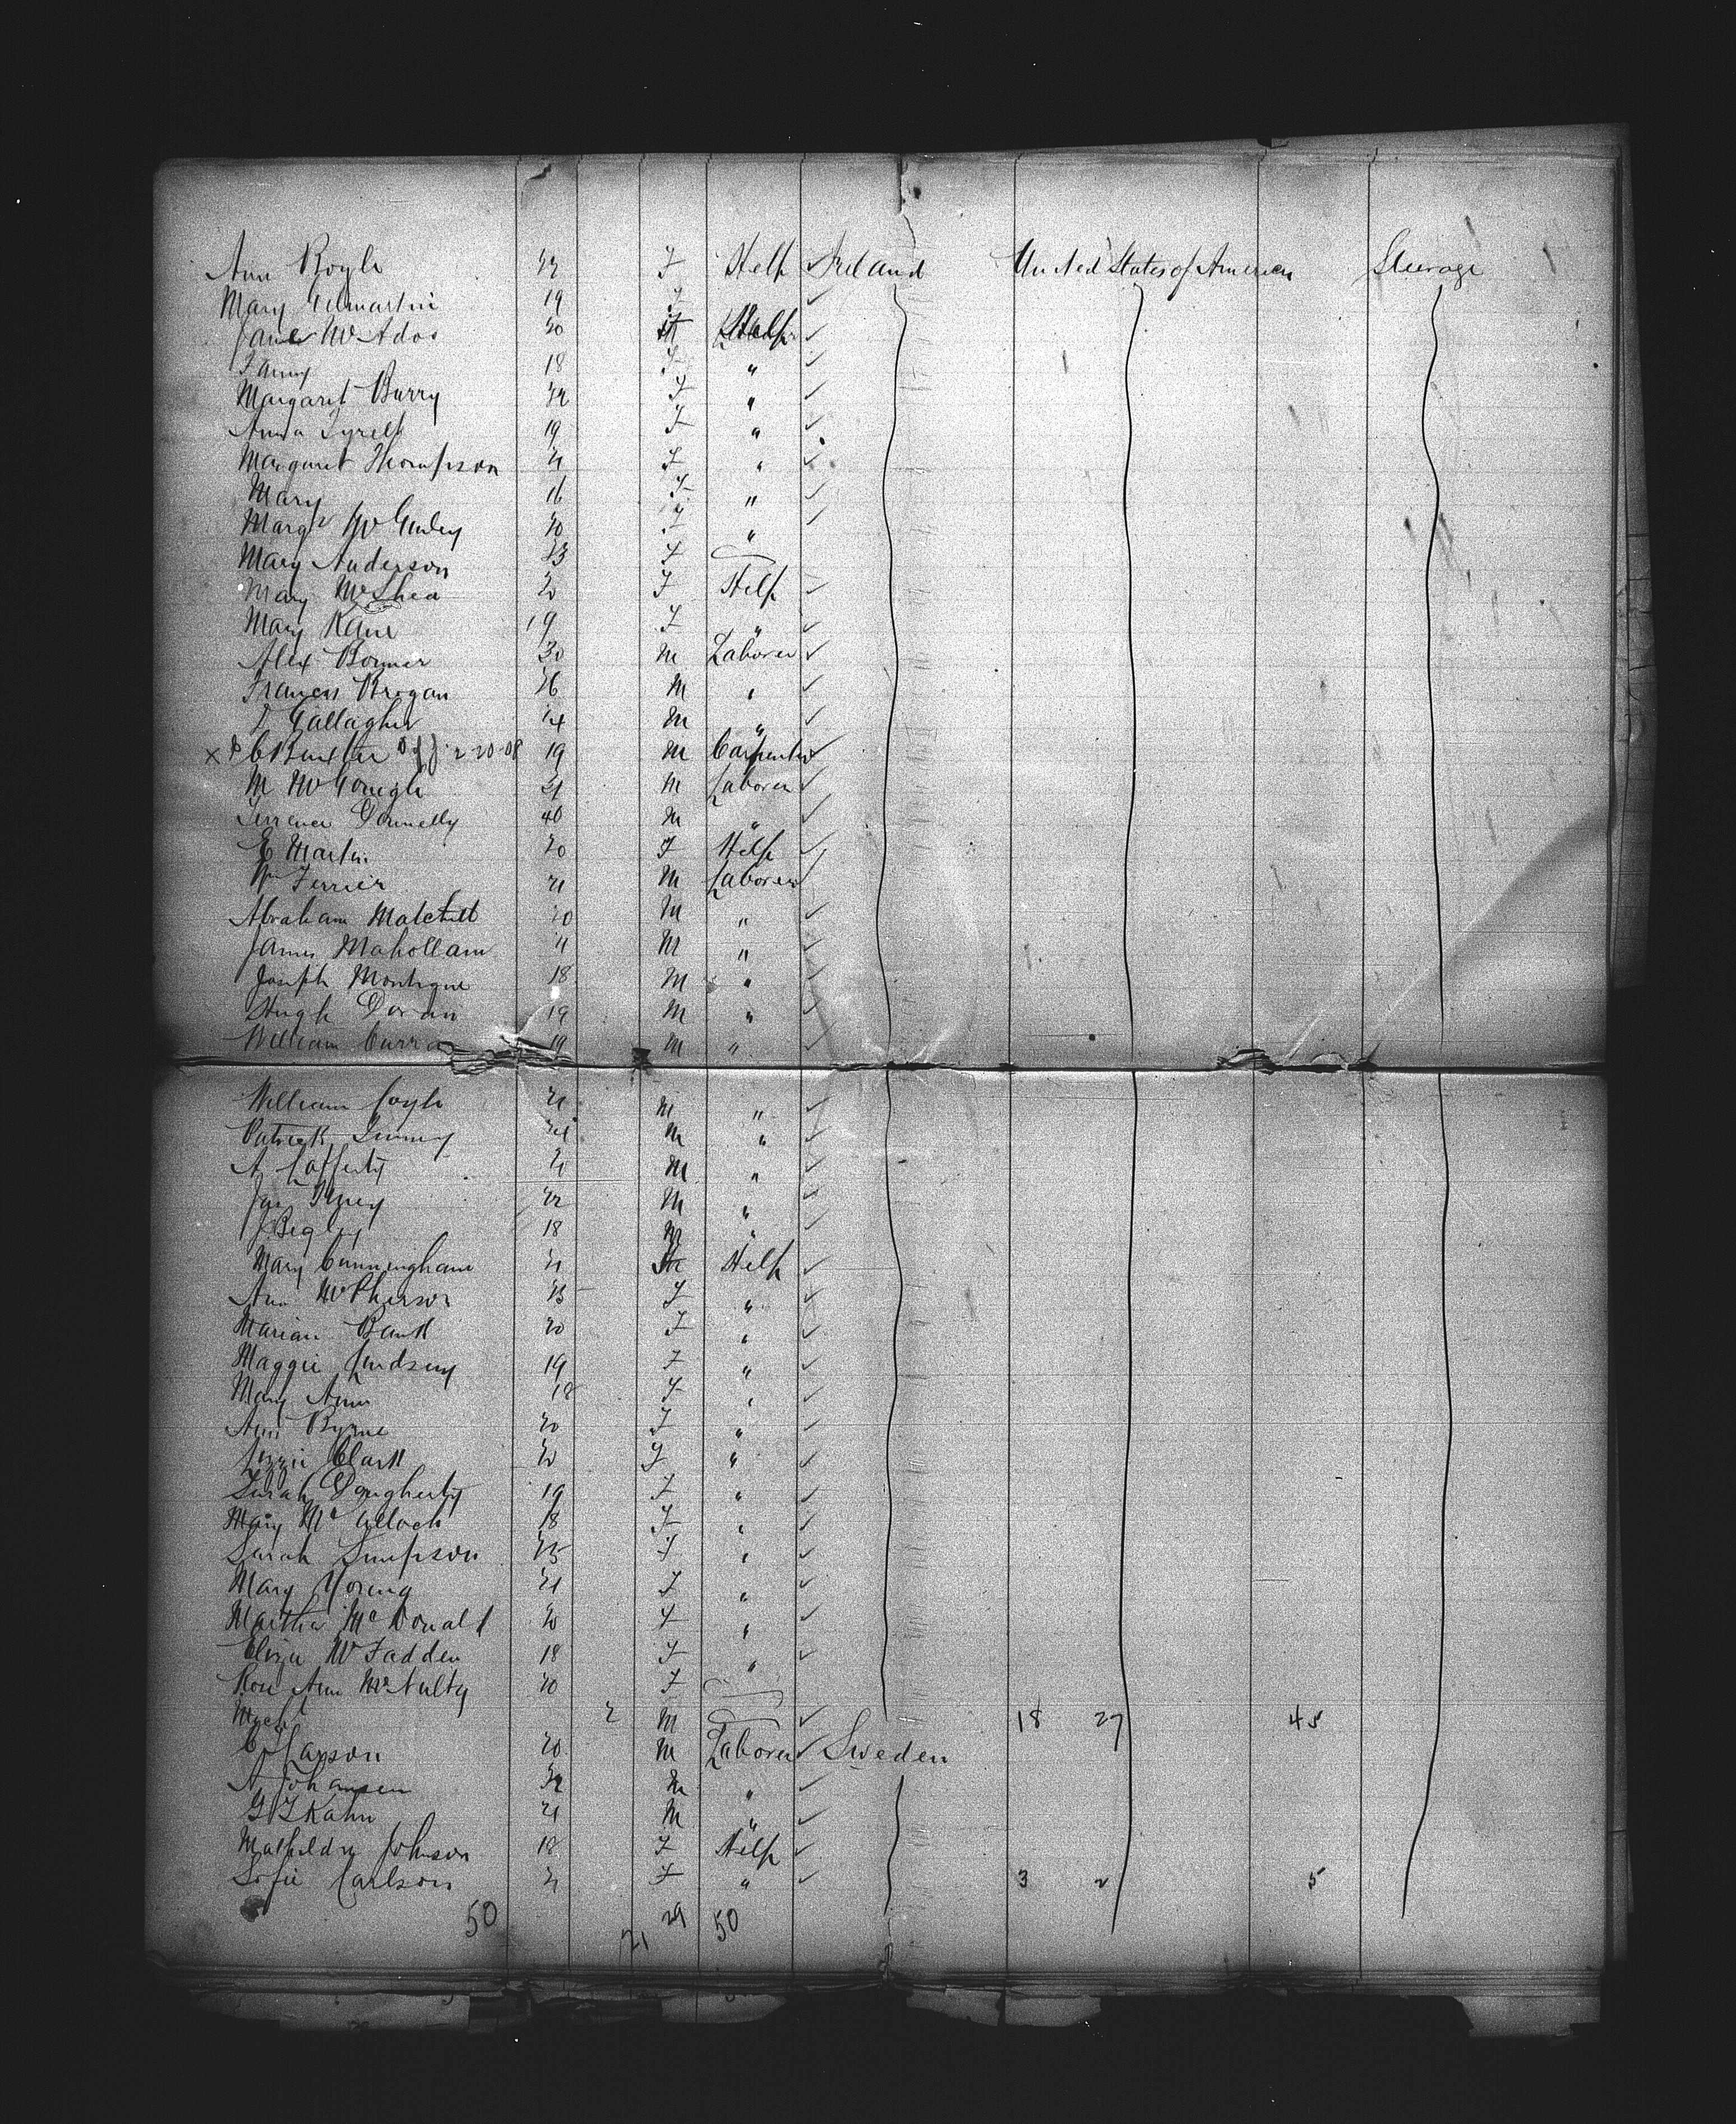 Ann Boyle 22 F Help ✓ Ireland United States of America Steerage
Mary Gilmartin 19 F ✓
Jane McAdoo 20 F Help ✓
Fanny 18 F " ✓
Margaret Barry 22 F " ✓
Anna Tyrell 19 F " ✓
Margaret Thompson 21 F " ✓
Mary 16 F " ✓
Margt McGinley 20 F " ✓
Mary Anderson 23 F
Mary McShea 20 F Help ✓
Mary Kane 19 F " ✓
Alex Bonner 30 M Laborer ✓
Francis Brogan 26 M " ✓
Gallagher 24 M " ✓
x 2-20-08 19 M Carpenter ✓
M McGonigle 21 M Laborer ✓
Terrence Donnelly 40 M " ✓
E Martin 20 F Help ✓
Wm Ferrier 21 M Laborer ✓
Abraham Matchett 20 M " ✓
James Mahollam M " ✓
Joseph Montigue 18 M " ✓
Hugh Doran 19 M " ✓
William Curran 19 M " ✓
William Coyle 21 M " ✓
Patrick M " ✓
A Lafferty 21 M " ✓
Jas 22 M " ✓
J Begley 18 M " ✓
Mary Cunningham 21 F Help ✓
Ann McPherson F " ✓
Marian 20 F " ✓
Maggie Lindsay 19 F " ✓
Mary Ann 18 F " ✓
Ann Byrne 20 F " ✓
Lizzie Clark 20 F " ✓
Sarah Dougherty 19 F " ✓
Mary McCulloch 18 F " ✓
Sarah Simpson 25 F " ✓
Mary Young 21 F " ✓
Martha McDonald 20 F " ✓
Eliza McFadden 18 F " ✓
Rose Ann McAnulty 20 F
2 M ✓ 18 27 45
C Larson 20 M Laborer ✓ Sweden
A Johansen 32 M " ✓
G F Kahn 21 M " ✓
Mathilda Johnson 18 F Help ✓
Sofie Carlson 21 F " ✓ 3 2 5
50 21 29 50